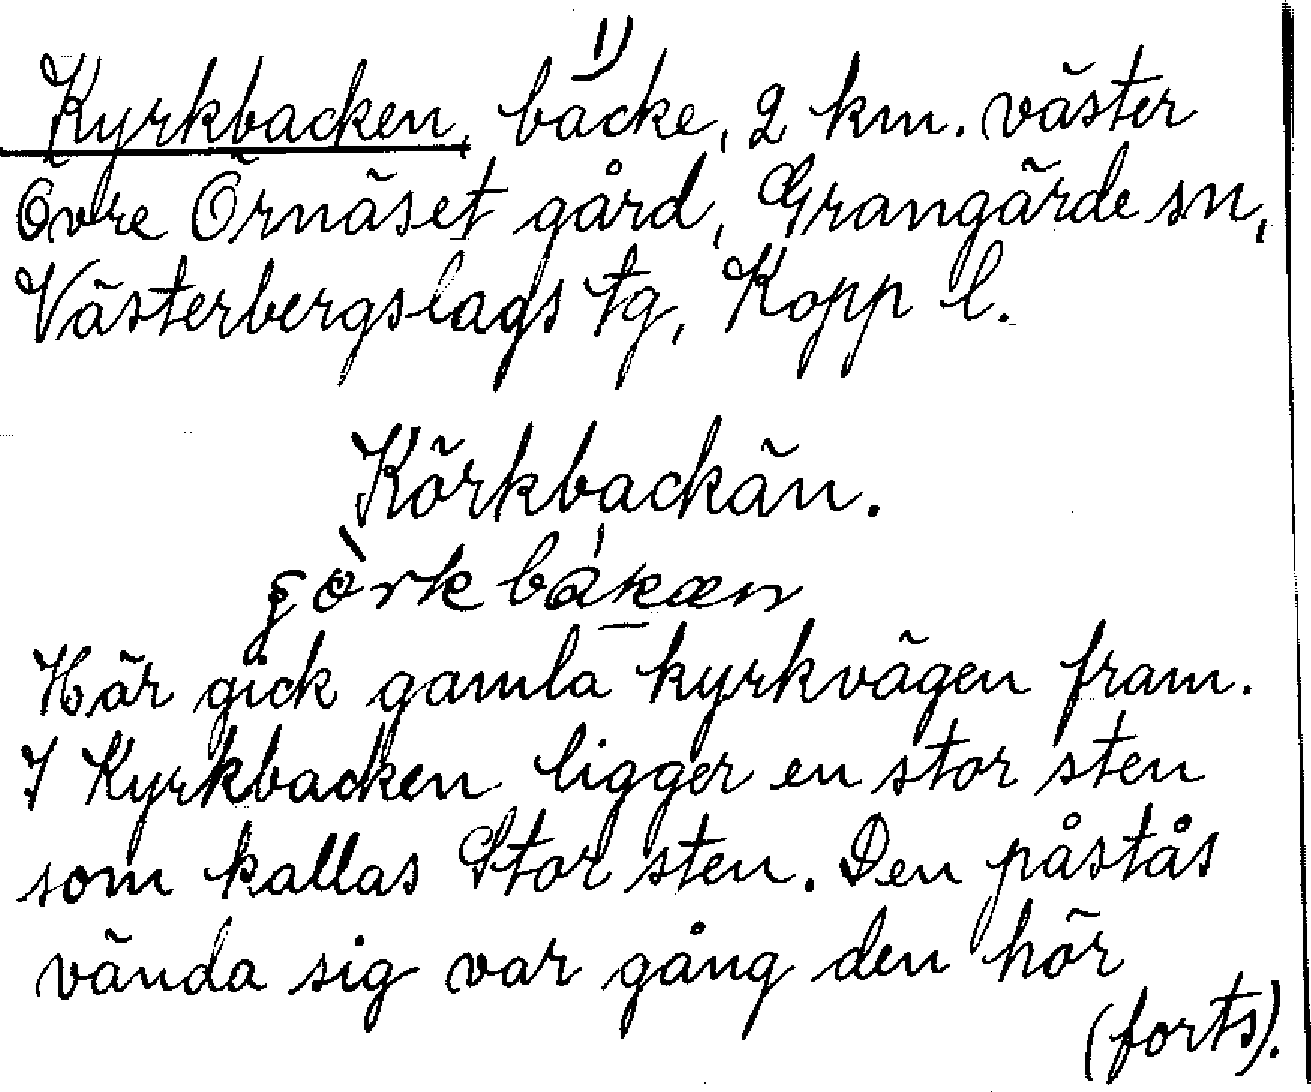 1)
Kyrkbacken, backe, 2 km. väster
Övre Örnäset gård, Grangärde sn,
Västerbergslags tg, Kopp l.
Körkbackän.
Här gick gamla kyrkvägen fram.
I Kyrkbacken ligger en stor sten
som kallas Stor sten. Den påstås
vända sig var gång den hör
(forts).